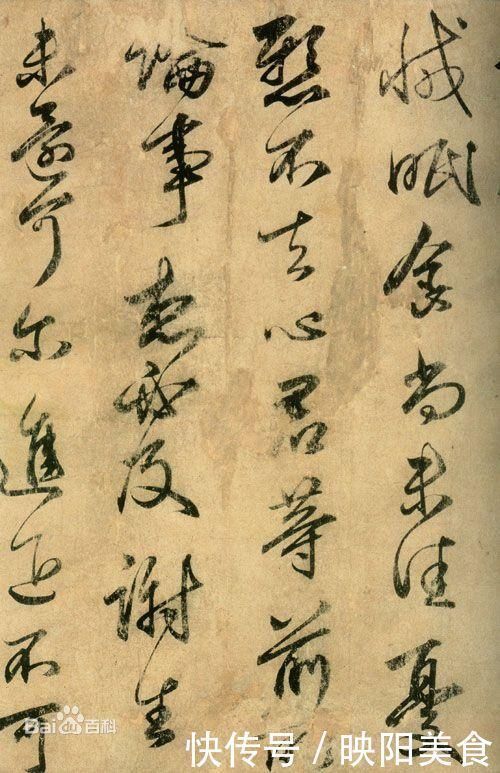 減眠食尚未佳憂
懸不去心君等前所
論事想必及謝生
未還可尔進退不可
Bai 百科
快传号/映阳美食